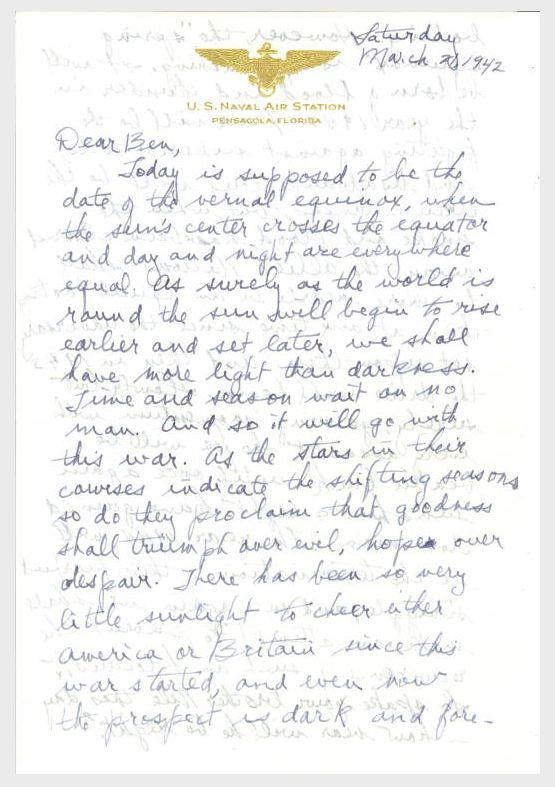 Saturday
March 1942
U.S. NAVAL AIR STATION
PENSACOLA, FLORIDA
Dear Ben,
Today is supposed to be the
date of the vernal equinox, when
the sun's center crosses the equator
and day and night are everywhere
equal. As surely as the world is
round the sun will begin to rise
earlier and set later, we shall
have more light than darkness.
Time and season wait on no
man. And so it will go with
this war. As the stars in their
courses indicate the shifting seasons
so do they proclaim that goodness
shall triumph over evil, hope over
despair. There has been so very
little sunlight to cheer either
America or Britain since this
war started, and even now
the prospect is dark and fore-